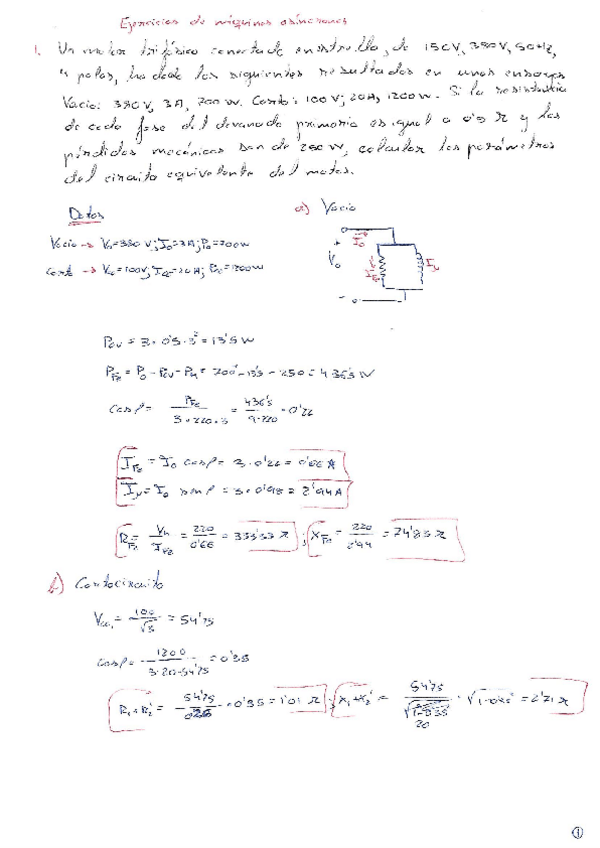 Ejercicios de máquinas asíncronas
1. Un motor trifásico conectado en estrella, de 15CV, 380V, 50Hz,
4 polos, ha dado los siguientes resultados en unos ensayos
Vacío: 380V, 3A, 700W. Corto: 100V; 20A; 1200W. Si la resistencia
de cada fase del devanado primario es igual a 0'5 Ω y las
pérdidas mecánicas son de 250 W, calcular los parámetros
del circuito equivalente del motor.
Datos
a) Vacío
Vacío → V₀=380V; I₀=3A; P₀=700W
Corto → Vcc=100V; Icc=20A; Pcc=1200W
I₀
+
V₀
-
I_Fe
Iμ
Pcu = 3·0'5·3² = 13'5W
P_Fe = P₀ - Pcu - Pm = 700 - 13'5 - 250 = 436'5 W
cosφ = P_Fe / 3·220·3 = 436'5 / 9·220 = 0'22
I_Fe = I₀ cosφ = 3·0'22 = 0'66 A
Iμ = I₀ senφ = 3·0'98 = 2'94A
R_Fe = V₁ / I_Fe = 220 / 0'66 = 333'33 Ω ; X_Fe = 220 / 2'94 = 74'83 Ω
b) Cortocircuito
Vcc₁ = 100 / √3 = 54'75
cosφ = 1200 / 3·20·54'75 = 0'35
R₁+R₂' = 54'75 · 0'35 = 1'01 Ω ; X₁+X₂' = 54'75 / 20 · √1-0'35² = 2'71 Ω
1